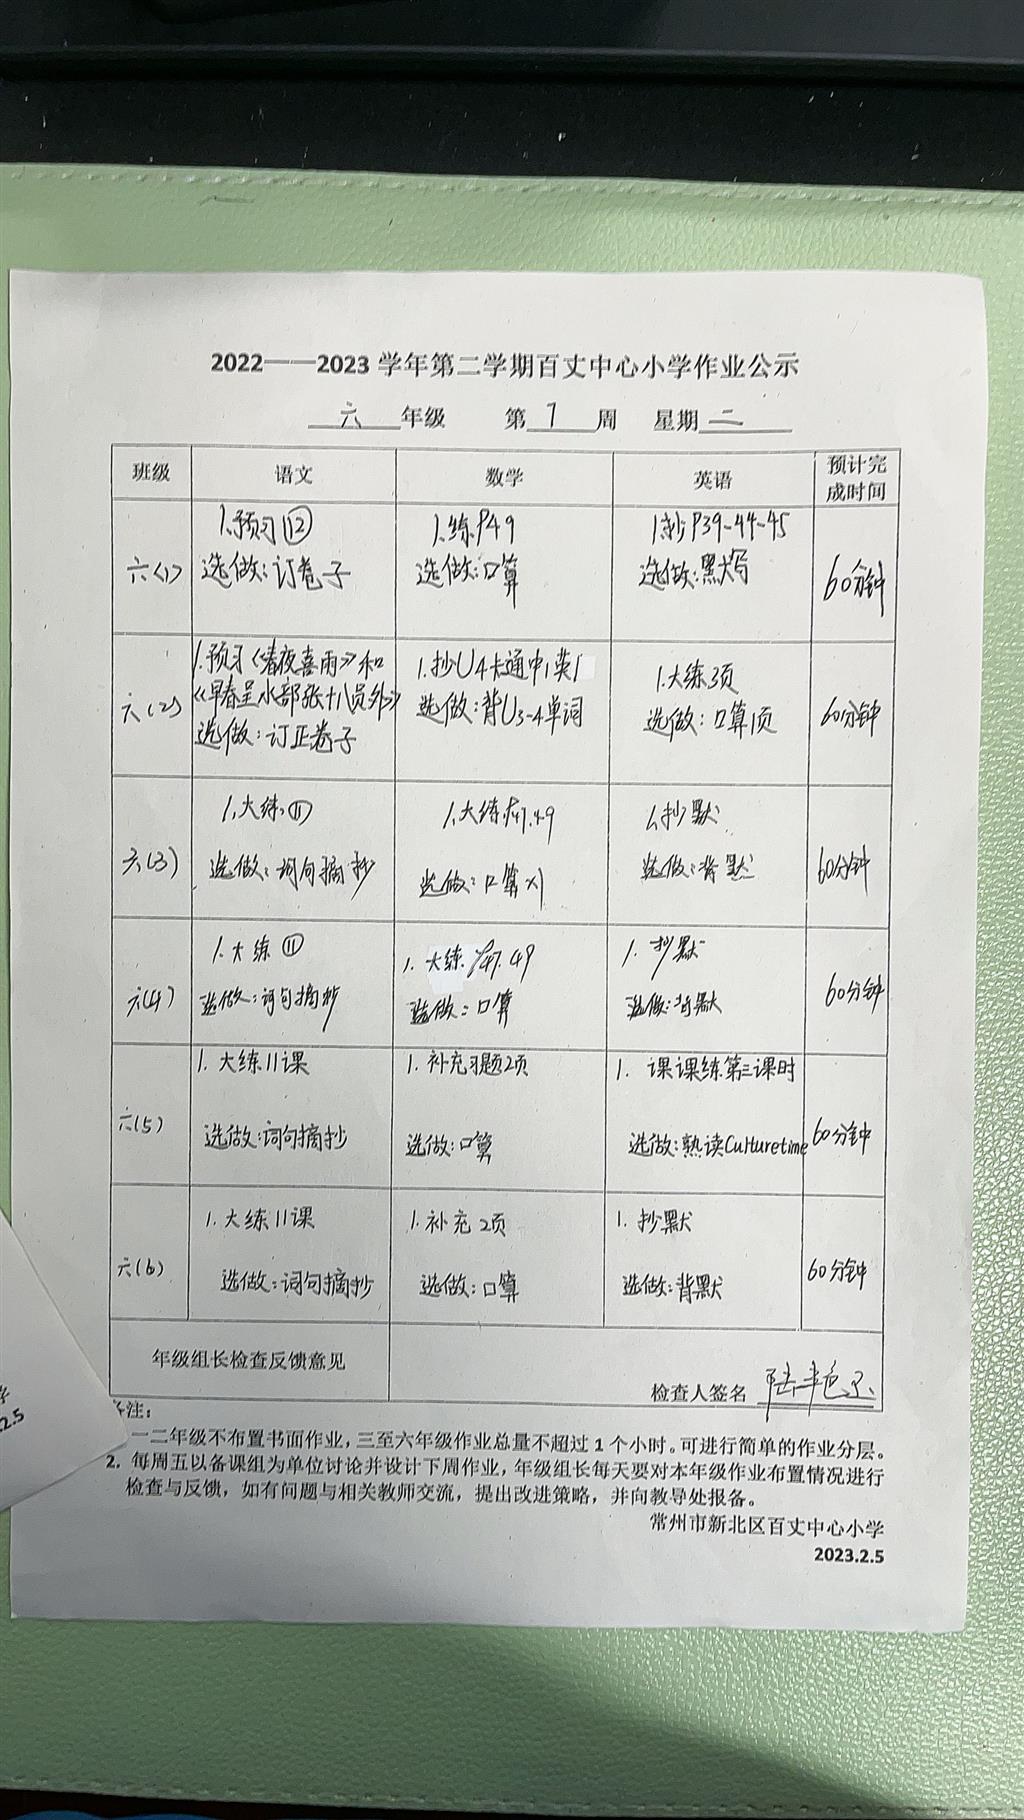 2022——2023 学年第二学期百丈中心小学作业公示
六 年级 第 7 周 星期 二
班级 语文 数学 英语 预计完成时间
六(1)
1.预习⑫
选做:订卷子
1.练P49
选做:口算
1.抄P39-44-45
选做:默写
60分钟
六(2)
1.预习《春夜喜雨》和
《早春呈水部张十八员外》
选做:订正卷子
1.抄U4卡通中1英1
选做:背U3-4单词
1.大练3页
选做:口算1页
60分钟
六(3)
1.大练⑪
选做:词句摘抄
1.大练P47.49
选做:口算×1
1.抄默
选做:背默
60分钟
六(4)
1.大练⑪
选做:词句摘抄
1.大练P47.49
选做:口算
1.抄默
选做:背默
60分钟
六(5)
1.大练11课
选做:词句摘抄
1.补充习题2页
选做:口算
1.课课练第三课时
选做:熟读Culturetime
60分钟
六(6)
1.大练11课
选做:词句摘抄
1.补充2页
选做:口算
1.抄默
选做:背默
60分钟
年级组长检查反馈意见
检查人签名
备注:
一二年级不布置书面作业,三至六年级作业总量不超过 1 个小时。可进行简单的作业分层。
2. 每周五以备课组为单位讨论并设计下周作业,年级组长每天要对本年级作业布置情况进行
检查与反馈,如有问题与相关教师交流,提出改进策略,并向教导处报备。
常州市新北区百丈中心小学
2023.2.5
学
2.5